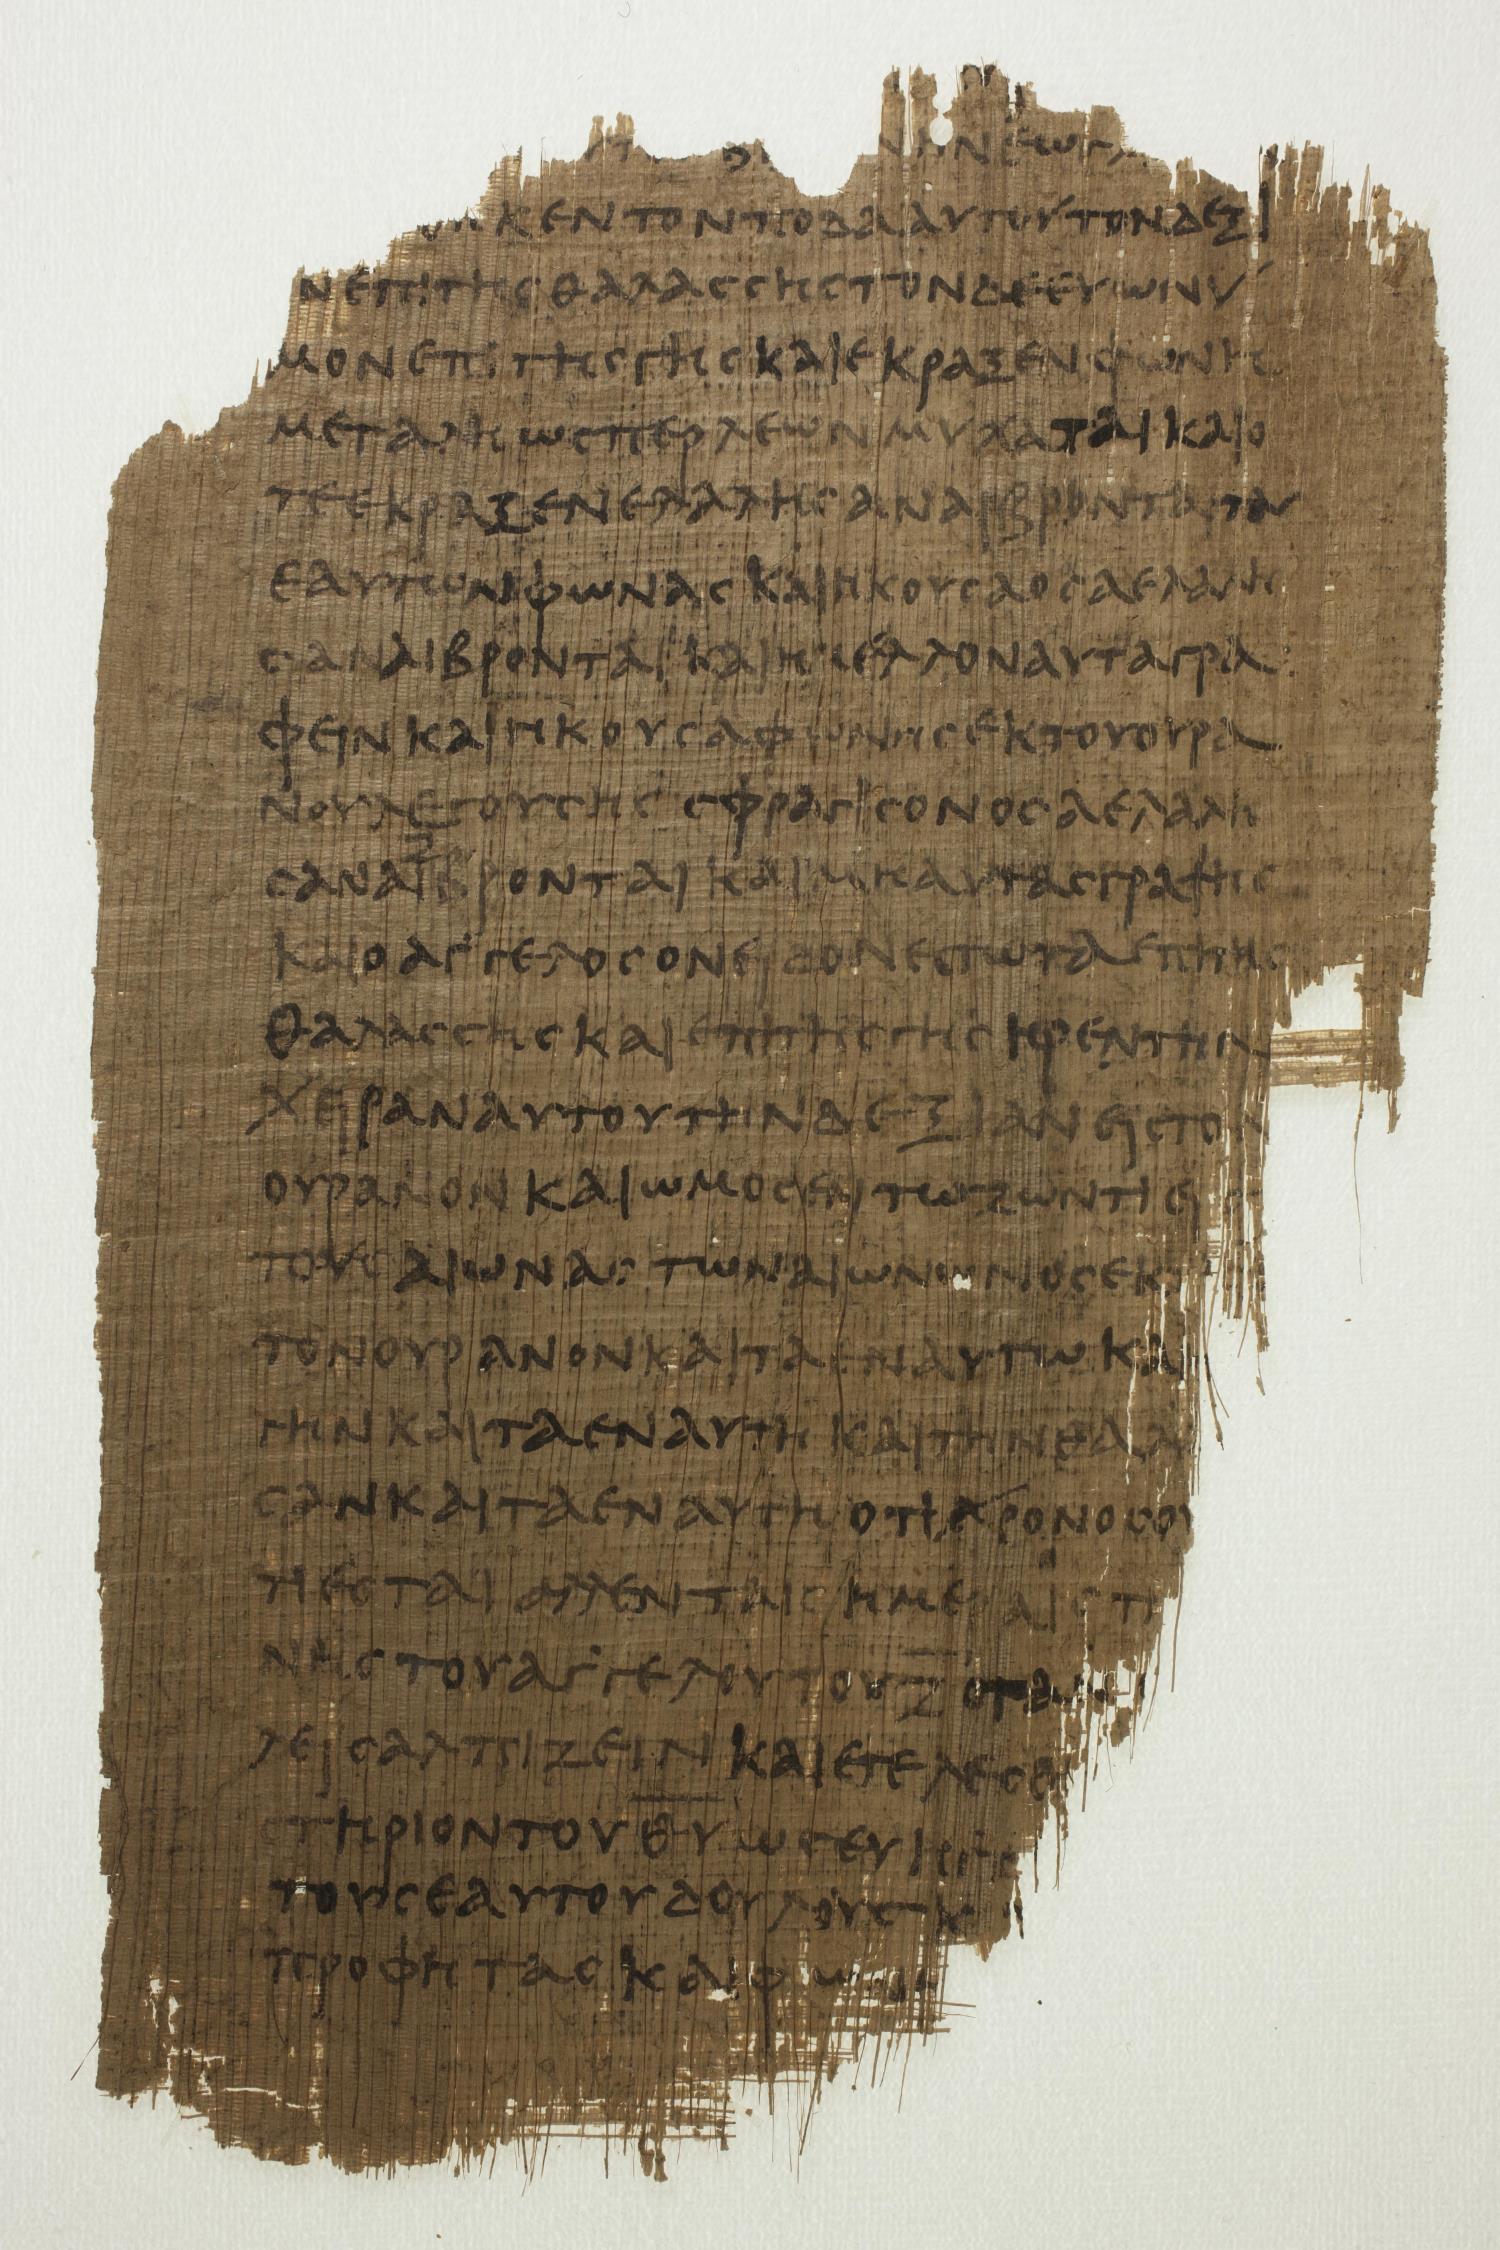 ΚΕΝ ΤΟΝ ΠΟΔΑ ΑΥΤΟΥ ΤΟΝ ΔΕΞΙ
Ν ΕΠΙ ΤΗС ΘΑΛΑССΗС ΤΟΝ ΔΕ ΕΥΩΝΥ
ΜΟΝ ΕΠΙ ΤΗС ΓΗС ΚΑΙ ΕΚΡΑΞΕΝ ΦΩΝΗ
ΜΕΓΑΛΗ ΩСΠΕΡ ΛΕΩΝ ΜΥΚΑΤΑΙ ΚΑΙ Ο
ΤΕ ΕΚΡΑΞΕΝ ΕΛΑΛΗСΑΝ ΑΙ Ζ ΒΡΟΝΤΑΙ ΤΑΣ
ΕΑΥΤΩΝ ΦΩΝΑС ΚΑΙ ΗΚΟΥСΑ ΟСΑ ΕΛΑΛΗ
СΑΝ ΑΙ ΒΡΟΝΤΑΙ ΚΑΙ ΗΜΕΛΛΟΝ ΑΥΤΑ ΓΡΑ
ΦΕΙΝ ΚΑΙ ΗΚΟΥСΑ ΦΩΝΗС ΕΚ ΤΟΥ ΟΥΡΑ
ΝΟΥ ΛΕΓΟΥСΗС СΦΡΑΓΙСΟΝ ΟСΑ ΕΛΑΛΗ
СΑΝ ΑΙ Ζ ΒΡΟΝΤΑΙ ΚΑΙ ΜΗ ΑΥΤΑС ΓΡΑΨΗС
ΚΑΙ Ο ΑΓΓΕΛΟС ΟΝ ΕΙΔΟΝ ΕСΤΩΤΑ ΕΠΙ ΤΗС
ΘΑΛΑССΗС ΚΑΙ ΕΠΙ ΤΗС ΓΗС ΗΡΕΝ ΤΗΝ
ΧΕΙΡΑΝ ΑΥΤΟΥ ΤΗΝ ΔΕΞΙΑΝ ΕΙС ΤΟΝ
ΟΥΡΑΝΟΝ ΚΑΙ ΩΜΟСΕΝ ΤΩ ΖΩΝΤΙ ΕΙ
ΤΟΥС ΑΙΩΝΑС ΤΩΝ ΑΙΩΝΩΝ ΟС ΕΚΤ
ΤΟΝ ΟΥΡΑΝΟΝ ΚΑΙ ΤΑ ΕΝ ΑΥΤΩ ΚΑΙ
ΓΗΝ ΚΑΙ ΤΑ ΕΝ ΑΥΤΗ ΚΑΙ ΤΗΝ ΘΑΛΑ
СΑΝ ΚΑΙ ΤΑ ΕΝ ΑΥΤΗ ΟΤΙ ΧΡΟΝΟС ΟΥ
ΤΙ ΕСΤΑΙ ΑΛΛ ΕΝ ΤΑΙС ΗΜΕΡΑΙС Τ
ΝΗС ΤΟΥ ΑΓΓΕΛΟΥ ΤΟΥ Ζ̅ ΟΤΑΝ
ΛΕΙ СΑΛΠΙΖΕΙΝ ΚΑΙ ΕΤΕΛΕСΘ
СΤΗΡΙΟΝ ΤΟΥ Θ̅Υ̅ ΩС ΕΥΗΓΓΕ
ΤΟΥС ΕΑΥΤΟΥ ΔΟΥΛΟΥС Κ
ΠΡΟΦΗΤΑС ΚΑΙ ΦΩΝΗ